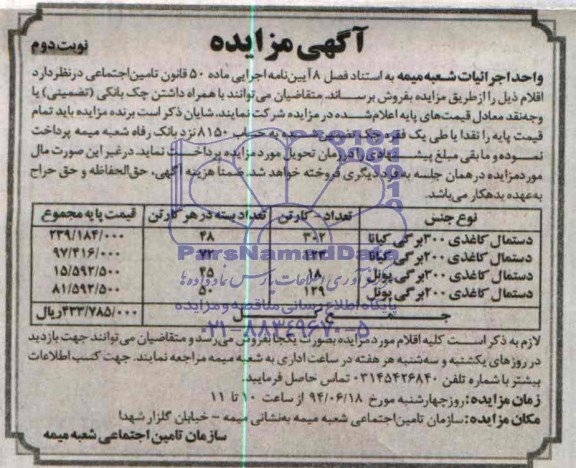 آگهی مزایده
نوبت دوم
واحد اجرائیات شعبه میمه به استناد فصل ۸ آیین‌نامه اجرایی ماده ۵۰ قانون تامین‌اجتماعی در نظر دارد
اقلام ذیل را از طریق مزایده بفروش برساند. متقاضیان می‌توانند با همراه داشتن چک بانکی (تضمینی) یا
وجه‌نقد معادل قیمت‌های پایه اعلام‌شده در مزایده شرکت نمایند. شایان ذکر است برنده مزایده باید تمام
قیمت پایه را نقدا یا طی یک فقره چک به حساب ۸۱۵۰ نزد بانک رفاه شعبه میمه پرداخت
نموده و مابقی مبلغ پیشنهادی را در زمان تحویل مورد مزایده پرداخت نماید. در غیر این صورت مال
مورد مزایده در همان جلسه به فرد دیگری فروخته خواهد شد. ضمنا هزینه آگهی، حق‌الحفاظه و حق حراج
به عهده بدهکار می‌باشد.
نوع جنس تعداد - کارتن تعداد بسته در هر کارتن قیمت پایه مجموع
دستمال کاغذی ۳۰۰ برگی کیانا ۳۰۲ ۴۸ ۲۳۹/۱۸۴/۰۰۰
دستمال کاغذی ۲۰۰ برگی کیانا ۱۲۳ ۷۲ ۹۷/۴۱۶/۰۰۰
دستمال کاغذی ۳۰۰ برگی پونل ۱۸ ۴۵ ۱۵/۵۹۲/۵۰۰
دستمال کاغذی ۲۰۰ برگی پونل ۱۲۹ ۵۰ ۸۱/۵۹۲/۵۰۰
جمع کل ۴۳۳/۷۸۵/۰۰۰ ریال
ParsNamadData
پایگاه اطلاع رسانی مناقصه و مزایده
۰۲۱-۸۸۳۴۹۶۷۰-۵
لازم به ذکر است کلیه اقلام مورد مزایده بصورت یکجا بفروش می‌رسد و متقاضیان می‌توانند جهت بازدید
در روزهای یکشنبه و سه‌شنبه هر هفته در ساعت اداری به شعبه میمه مراجعه نمایند. جهت کسب اطلاعات
بیشتر با شماره تلفن ۰۳۱۴۵۴۲۶۸۴۰ تماس حاصل فرمایید.
زمان مزایده: روز چهارشنبه مورخ ۹۴/۰۶/۱۸ از ساعت ۱۰ تا ۱۱
مکان مزایده: سازمان تامین‌اجتماعی شعبه میمه به‌نشانی میمه - خیابان گلزار شهدا
سازمان تامین اجتماعی شعبه میمه